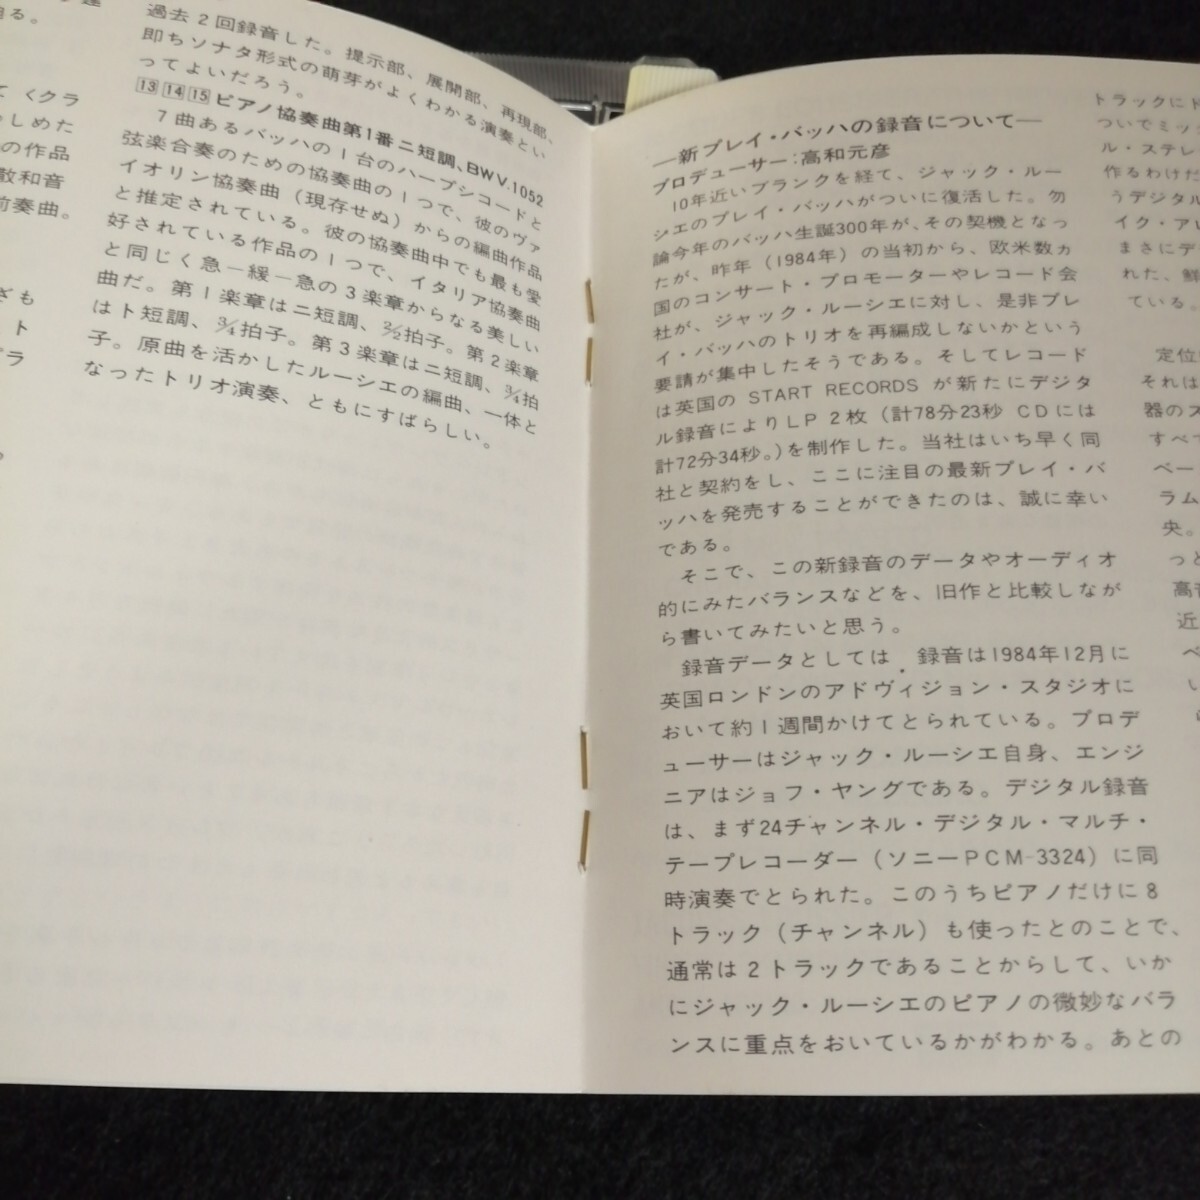 る。
て〈クラ
しめた
の作品
散和音
前奏曲。
ざも
ト
ラ
。
過去2回録音した。提示部、展開部、再現部、
即ちソナタ形式の萌芽がよくわかる演奏とい
ってよいだろう。
13 14 15 ピアノ協奏曲第1番ニ短調、BWV.1052
7曲あるバッハの1台のハープシコードと
弦楽合奏のための協奏曲の1つで、彼のヴァ
イオリン協奏曲（現存せぬ）からの編曲作品
と推定されている。彼の協奏曲中でも最も愛
好されている作品の1つで、イタリア協奏曲
と同じく急－緩－急の3楽章からなる美しい
曲だ。第1楽章はニ短調、2/2拍子。第2楽章
はト短調、3/4拍子。第3楽章はニ短調、3/4拍
子。原曲を活かしたルーシエの編曲、一体と
なったトリオ演奏、ともにすばらしい。
―新プレイ・バッハの録音について―
プロデューサー：高和元彦
10年近いブランクを経て、ジャック・ルー
シエのプレイ・バッハがついに復活した。勿
論今年のバッハ生誕300年が、その契機となっ
たが、昨年（1984年）の当初から、欧米数ヵ
国のコンサート・プロモーターやレコード会
社が、ジャック・ルーシエに対し、是非プレ
イ・バッハのトリオを再編成しないかという
要請が集中したそうである。そしてレコード
は英国の START RECORDS が新たにデジタ
ル録音によりLP 2枚（計78分23秒 CDには
計72分34秒。）を制作した。当社はいち早く同
社と契約をし、ここに注目の最新プレイ・バ
ッハを発売することができたのは、誠に幸い
である。
そこで、この新録音のデータやオーディオ
的にみたバランスなどを、旧作と比較しなが
ら書いてみたいと思う。
録音データとしては、録音は1984年12月に
英国ロンドンのアドヴィジョン・スタジオに
おいて約1週間かけてとられている。プロデ
ューサーはジャック・ルーシエ自身、エンジ
ニアはジョフ・ヤングである。デジタル録音
は、まず24チャンネル・デジタル・マルチ・
テープレコーダー（ソニーPCM-3324）に同
時演奏でとられた。このうちピアノだけに8
トラック（チャンネル）も使ったとのことで、
通常は2トラックであることからして、いか
にジャック・ルーシエのピアノの微妙なバラ
ンスに重点をおいているかがわかる。あとの
トラックにド
ついでミッ
ル・ステレ
作るわけだ
うデジタル
イク・アレ
まさにデ
れた、鮮
ている。
定位
それは
器のス
すべて
ベー
ラム
央。
っと
高音
近
べ
い